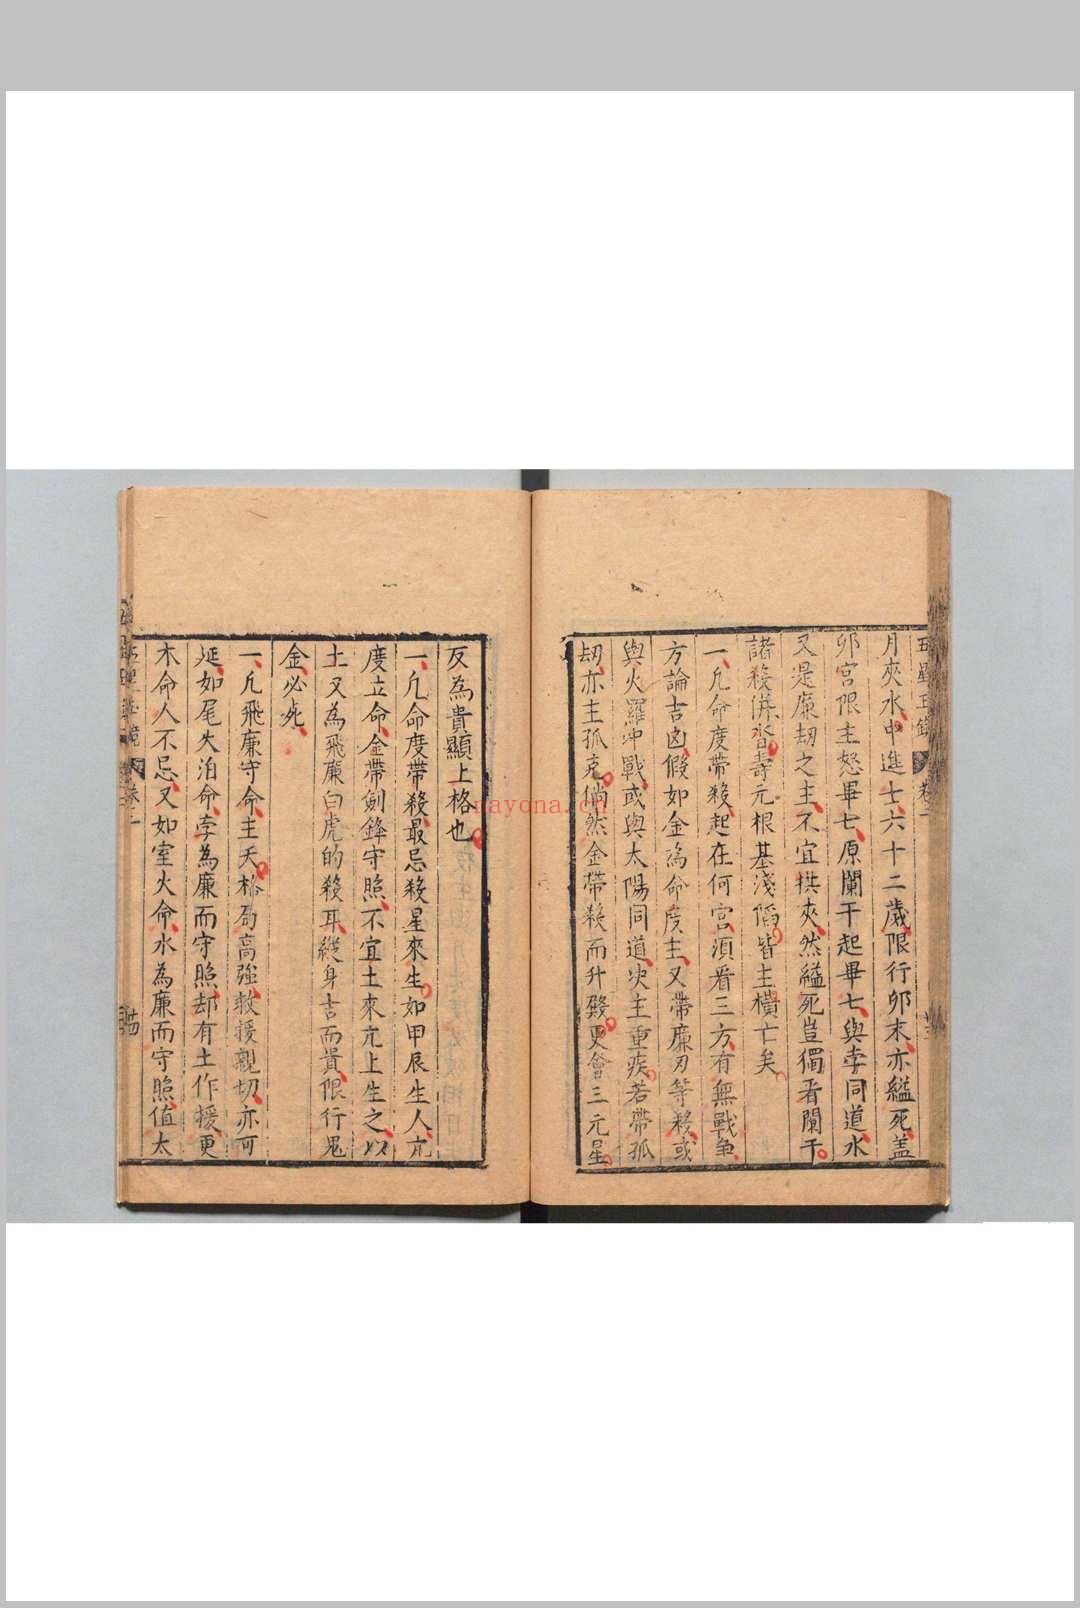 五星正錄 卷二
月夾水中進士六十二歲限行卯末亦縊死盖
卯宮限主怒畢七原闌干起畢七與孛同道水
又是廉刼之主不宜拱夾然縊死豈獨看闌干
諸殺倂沓壽元根基淺侷皆主橫亡矣
一凡命度帶殺起在何宮須看三方有無戰争
方論吉凶假如金為命度主又帶廉刃等殺或
與火羅冲戰或與太陽同道决主重疾若帶孤
刼亦主孤克倘然金帶殺而升殿更會三元星
反為貴顯上格也
一凡命度帶殺最忌殺星來生如甲辰生人亢
度立命金帶劍鋒守照不宜土來亢上生之以
土又為飛廉白虎的殺耳縱身吉而貴限行鬼
金必死
一凡飛廉守命主夭格局高強救援親切亦可
延如尾火泊命孛為廉而守照却有土作援更
木命人不忌又如室火命水為廉而守照值太
卷二
nayona.cn